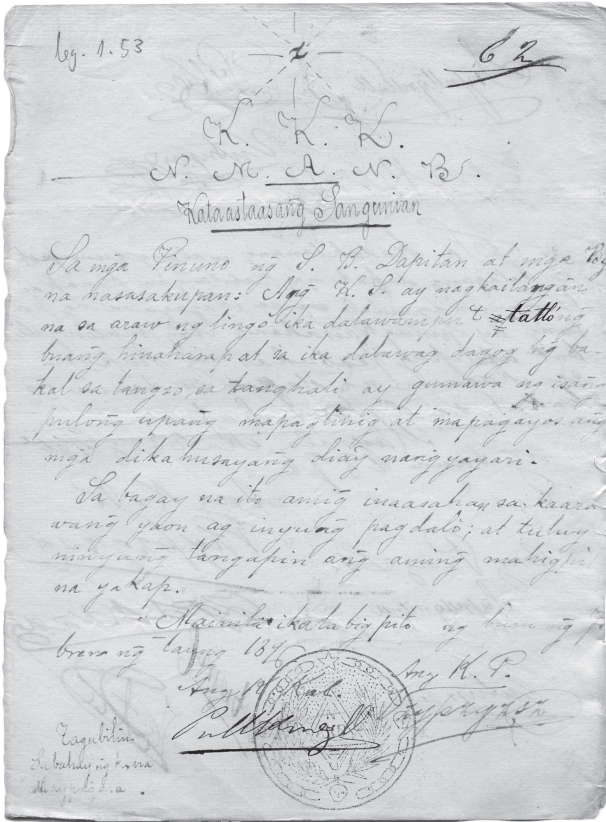 leg. 1. 53
62
K. K. K.
N. M. A. N. B.
Kataastaasang Sangunian
Sa mga Pinuno ng S. B. Dapitan at mga
na nasasakupan: Ang K. S. ay nagkailangan
na sa araw ng lingo ika dalawampu t tatlong
buang hinaharap at sa ika dalawag dagog ng ba-
kal sa tangso, sa tanghali ay gumawa ng isang
pulong upang mapagtinig at mapagayos ang
mga dikahusayang diay nangyayari.
Sa bagay na ito aming inaasahan sa kaara
wang yaon ag inyung pagdalo; at tuluy
ninyung tangapin ang aming mahigpi
na yakap.
Mainila ikalabigpito ng buan ng
brero ng taung 1896
Ang K. P.
Ang K. Kal.
Tagubilin
Sa bahay ng